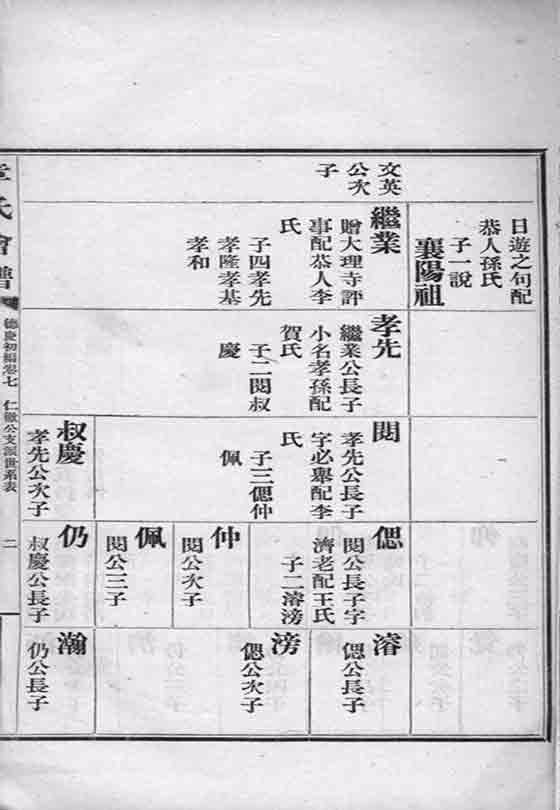 日遊之句配
恭人孫氏
子一說
襄陽祖
文英
公次
子
繼業
贈大理寺評
事配恭人李
氏
子四孝先
孝隆孝基
孝和
孝先
繼業公長子
小名孝孫配
賀氏
子二閱叔
慶
閱
孝先公長子
字必舉配李
氏
子三偲仲
佩
叔慶
孝先公次子
偲
閱公長子字
濟老配王氏
子二濬滂
仲
閱公次子
佩
閱公三子
仍
叔慶公長子
濬
偲公長子
滂
偲公次子
瀚
仍公長子
章氏會譜
德慶初編卷七
仁徹公支派世系表
二